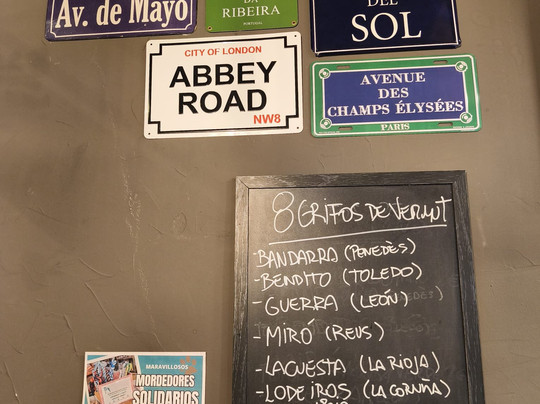 Av. de Mayo
DA
RIBEIRA
PORTUGAL
DEL
SOL
CITY OF LONDON
ABBEY
ROAD
NW8
AVENUE
DES
CHAMPS ÉLYSÉES
PARIS
8 GRIFOS DE VERMUT
- BANDARRA (PENEDÈS)
- BENDITO (TOLEDO)
- GUERRA (LEÓN)
- MIRÓ (REUS)
- LACUESTA (LA RIOJA)
- LODEIROS (LA CORUÑA)
MARAVILLOSOS
MORDEDORES
SOLIDARIOS